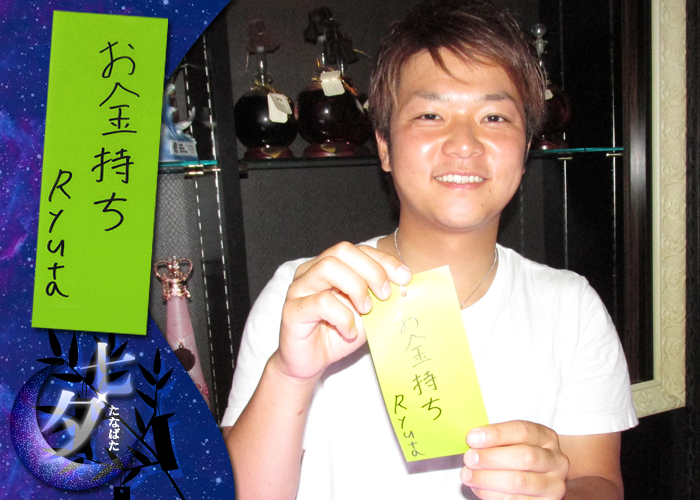 お金持ち
Ryuta
七夕
たなばた
お金持ち
Ryuta